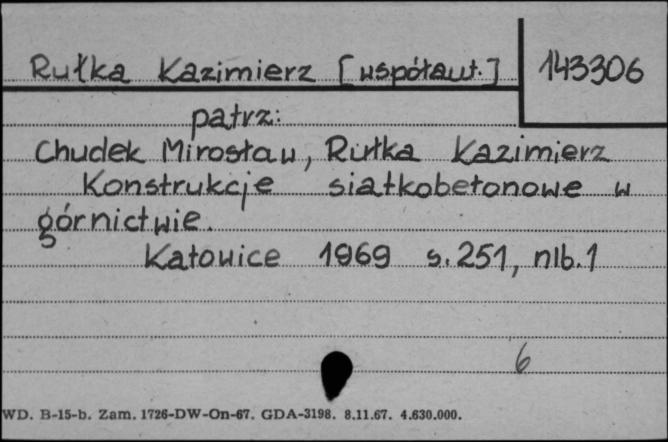 Rułka Kazimierz [współaut.]
143306
patrz:
Chudek Mirosław, Rułka Kazimierz
Konstrukcje siatkobetonowe w
górnictwie.
Katowice 1969 s. 251, nlb. 1
6
WD. B-15-b. Zam. 1726-DW-On-67. GDA-3198. 8.11.67. 4.630.000.